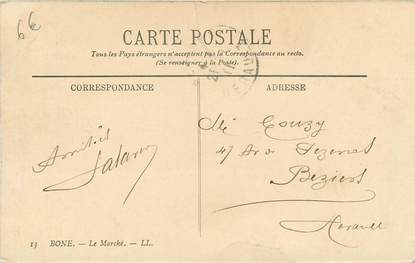 6€
CARTE POSTALE
Tous les Pays étrangers n'acceptent pas la Correspondance au recto.
(Se renseigner à la Poste).
CORRESPONDANCE
ADRESSE
Couzy
47 de Pezenas
Beziers
Herault
13 BONE. - Le Marché. - LL.